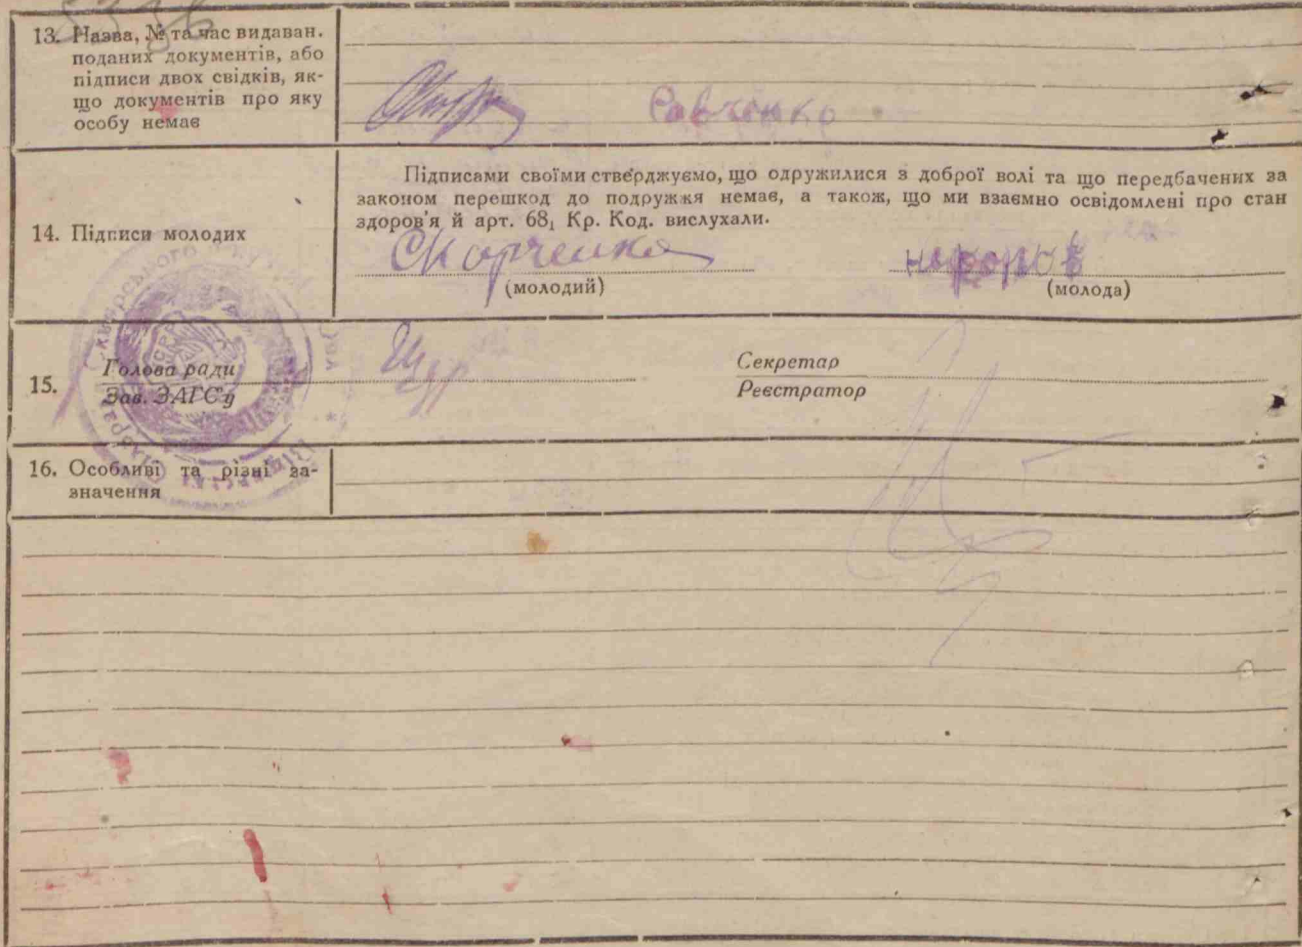 13. Назва, № та час видаван.
поданих документів, або
підписи двох свідків, як-
що документів про яку
особу немає
Савченко
14. Підписи молодих
Підписами своїми стверджуємо, що одружилися з доброї волі та що передбачених за
законом перешкод до подружжя немає, а також, що ми взаємно освідомлені про стан
здоров'я й арт. 68₁ Кр. Код. вислухали.
(молодий)
(молода)
15.
Голова ради
Зав. ЗАГС'у
Секретар
Реєстратор
16. Особливі та різні за-
значення